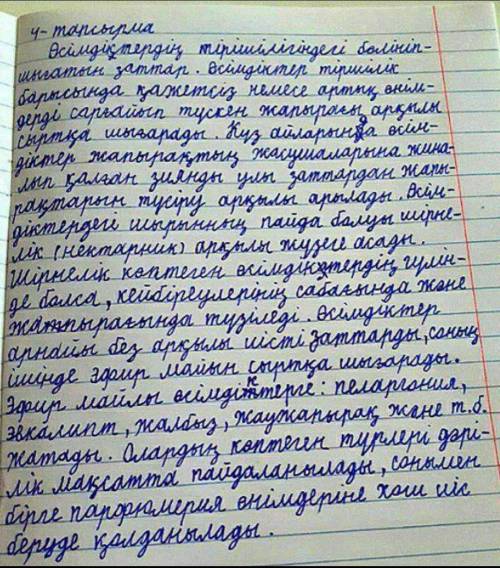 4-тапсырма
Өсімдіктердің тірішілігіндегі бөлініп-
шығатын заттар. Өсімдіктер тіршілік
барысында қажетсіз немесе артық өнім-
дерді сарғайып түскен жапырағы арқылы
сыртқа шығарады. Күз айларында өсім-
діктер жапырақтың жасушаларына жина-
лып қалған зиянды улы заттардан жапы-
рақтарын түсіру арқылы арылады. Өсім-
діктердегі шырынның пайда болуы шірне-
лік (нектарник) арқылы жүзеге асады.
Шірнелік көптеген өсімдіктердің гүлін-
де болса, кейбіреулерінің сабағында және
жапырағында түзіледі. Өсімдіктер
арнайы без арқылы иісті заттарды, соның
ішінде эфир майын сыртқа шығарады.
Эфир майлы өсімдіктерге: пеларгония,
эвкалипт, жалбыз, жаужапырақ және т.б.
жатады. Олардың көптеген түрлері дәрі-
лік мақсатта пайдаланылады, сонымен
бірге парфюмерия өнімдеріне хош иіс
беруде қолданылады.